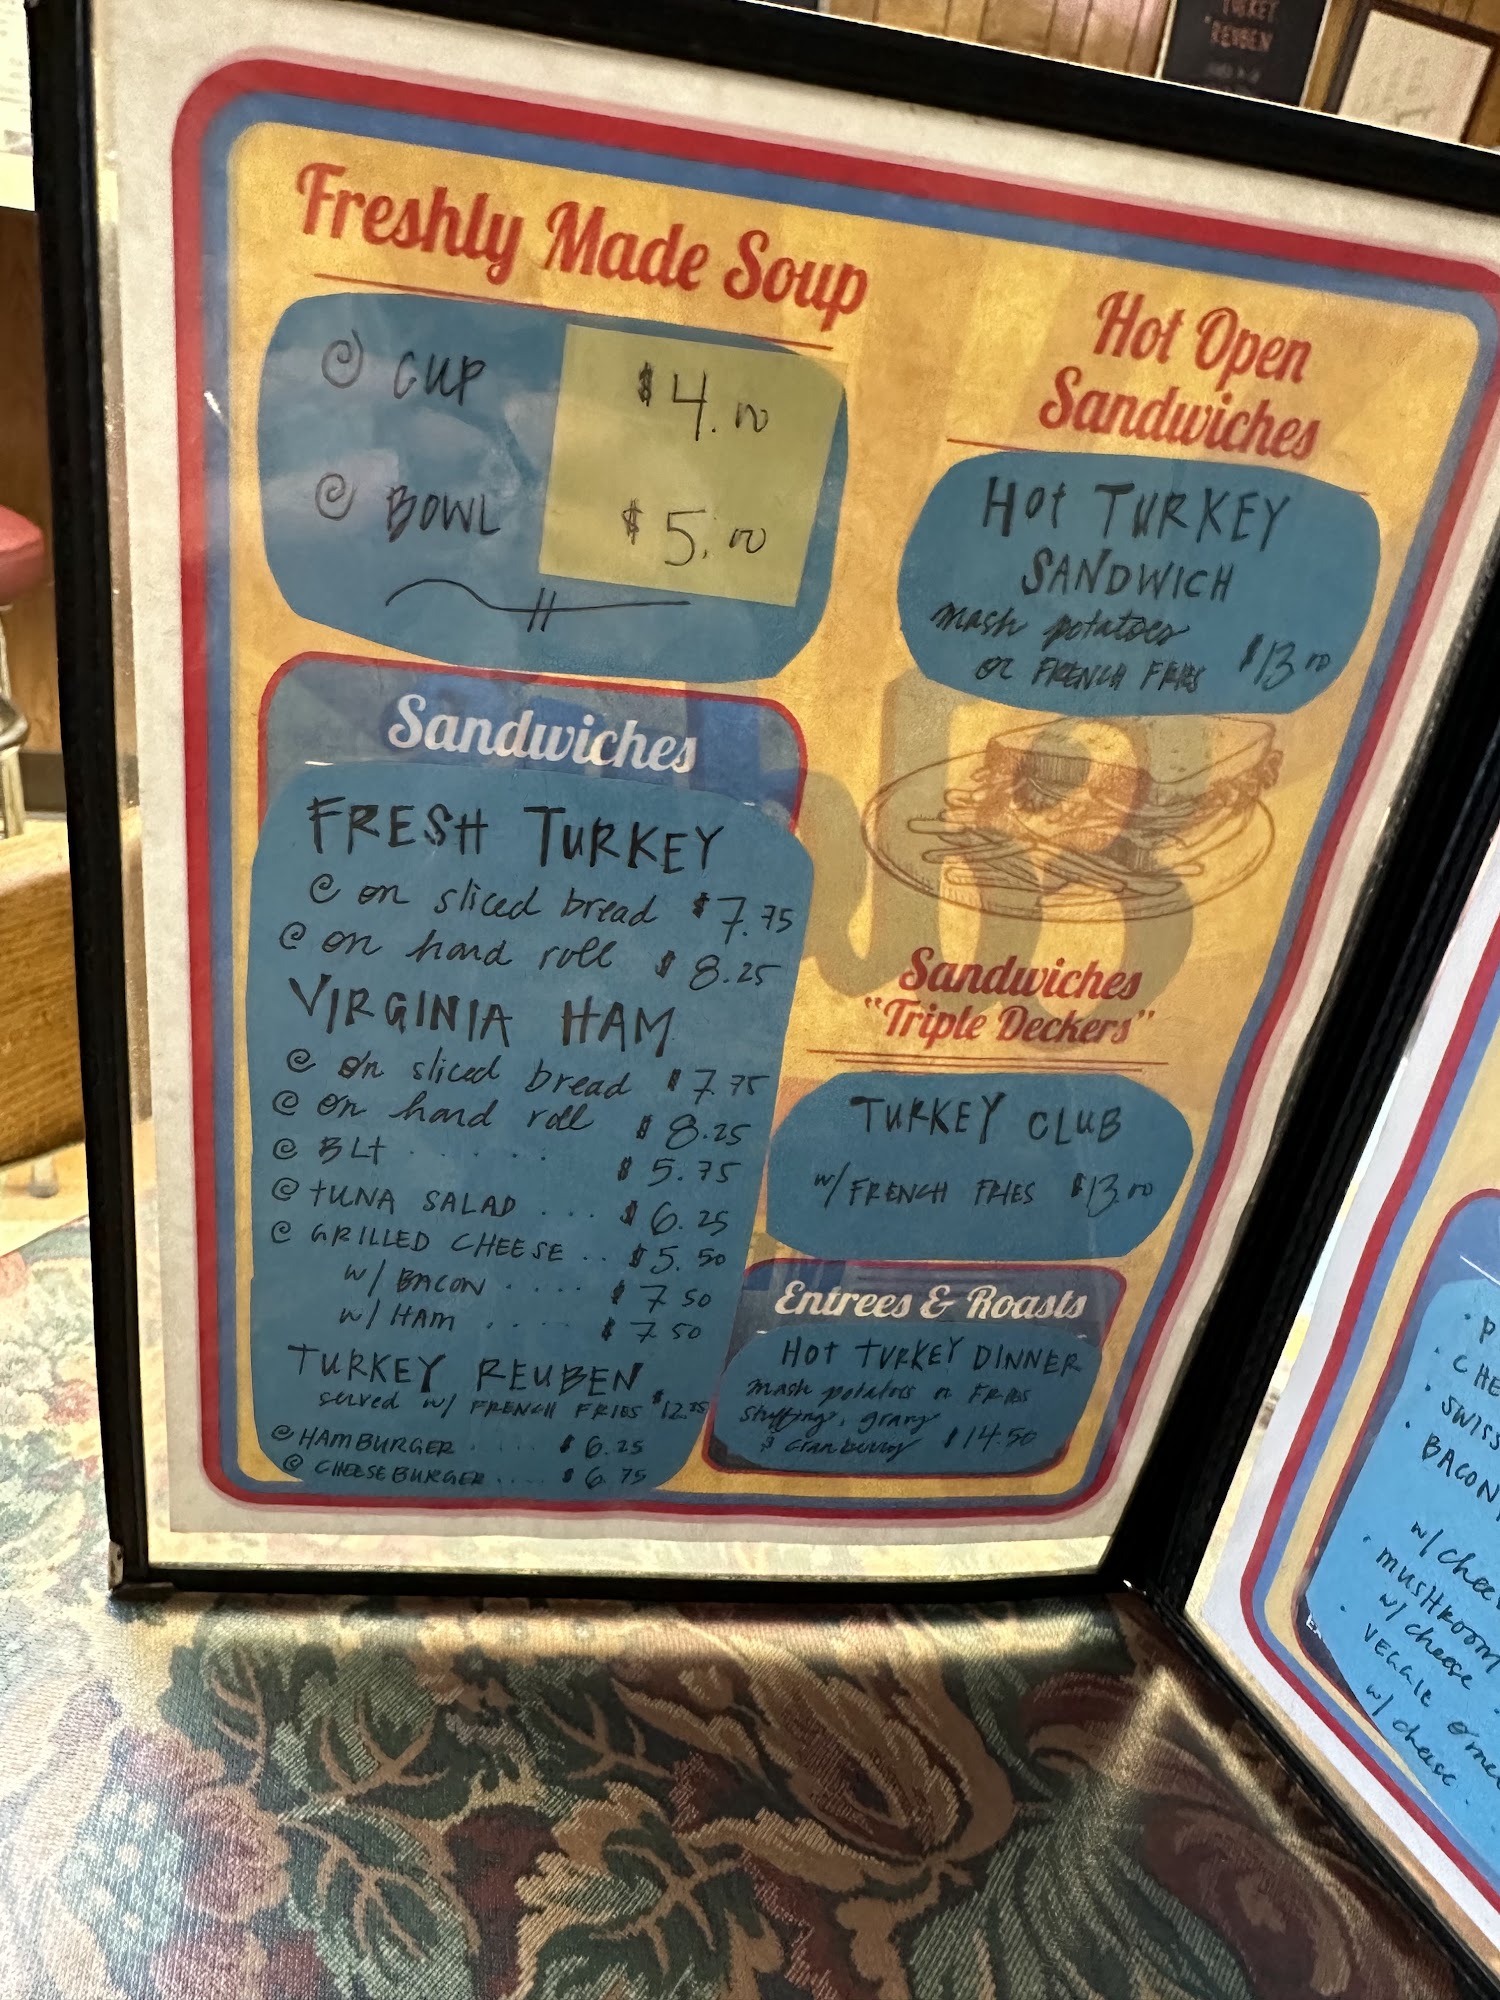 Freshly Made Soup
CUP $4.00
BOWL $5.00
Sandwiches
FRESH TURKEY
on sliced bread $7.75
on hard roll $8.25
VIRGINIA HAM
on sliced bread $7.75
on hard roll $8.25
BLT ...... $5.75
TUNA SALAD ... $6.25
GRILLED CHEESE .. $5.50
w/ BACON .... $7.50
w/ HAM .... $7.50
TURKEY REUBEN
served w/ FRENCH FRIES
HAMBURGER .... $6.25
CHEESEBURGER .... $6.75
Hot Open
Sandwiches
HOT TURKEY
SANDWICH
mash potatoes
or FRENCH FRIES $13.00
Sandwiches
"Triple Deckers"
TURKEY CLUB
w/ FRENCH FRIES $13.00
Entrees & Roasts
HOT TURKEY DINNER
mash potatoes or FRIES
stuffing, gravy
& cranberry $14.50
CHE
SWISS
BACON
w/ chee
MUSHROOM
w/ cheese
VEGGIE
w/ cheese
TURKEY
REUBEN